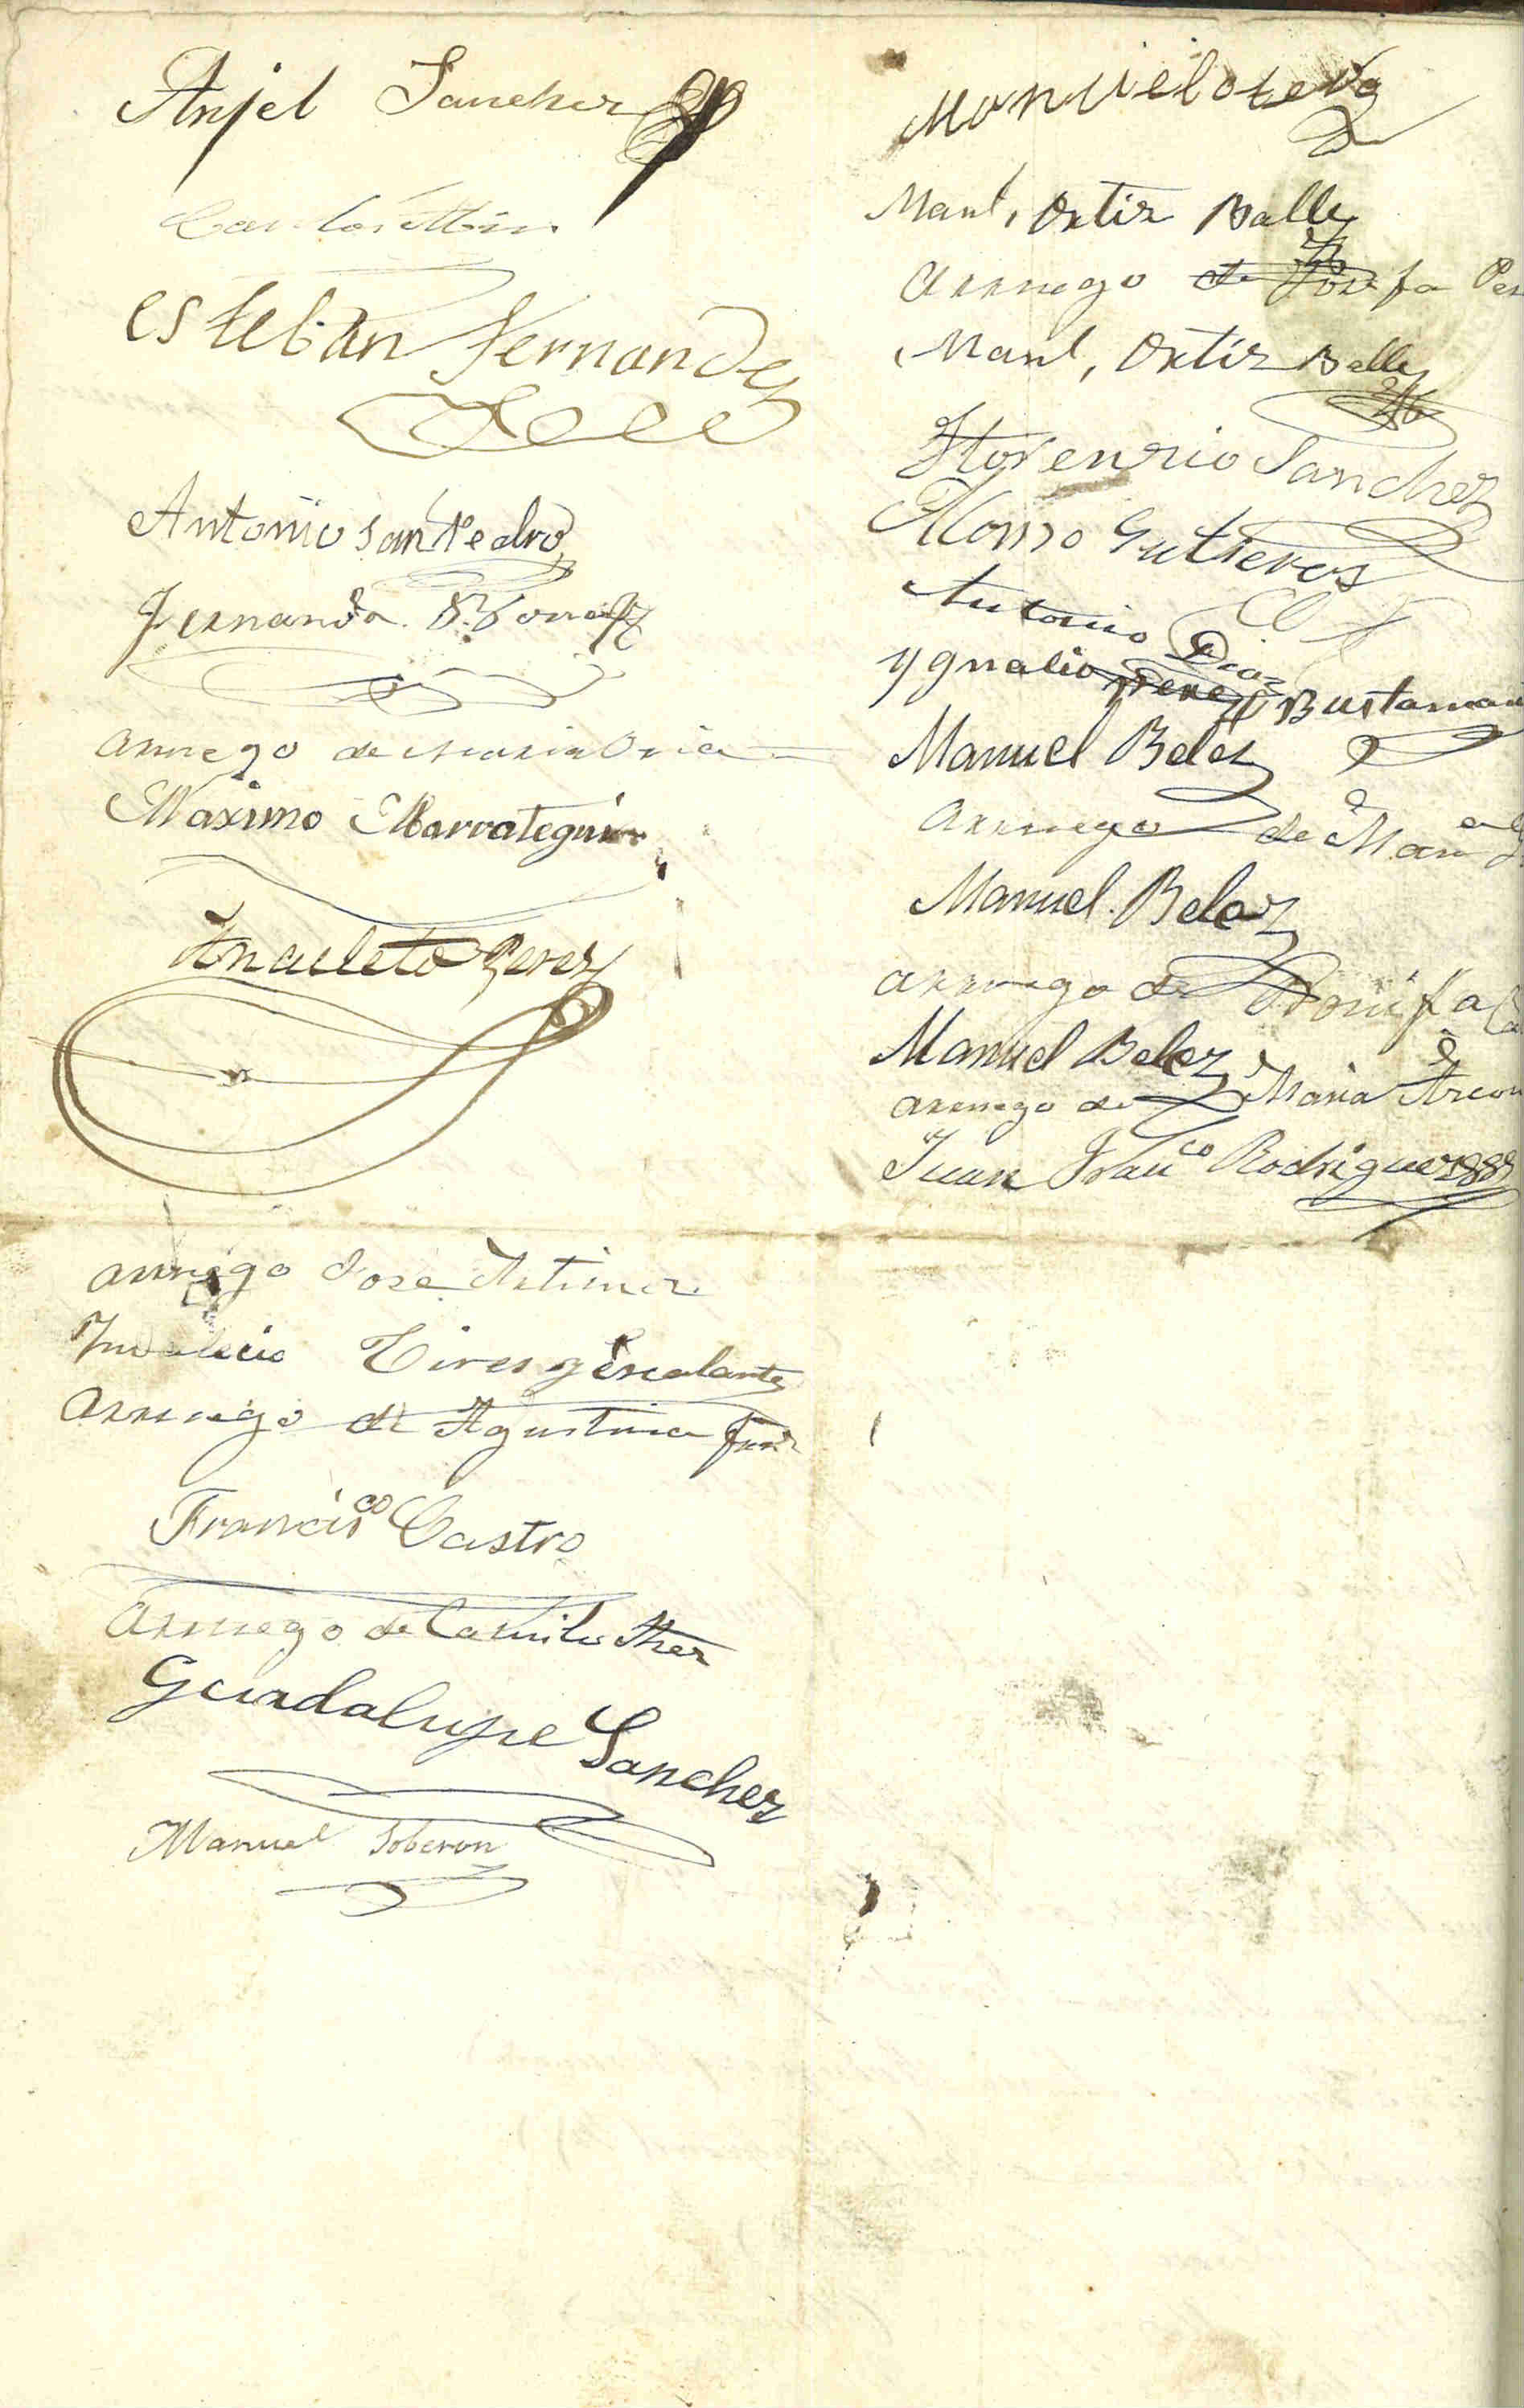 Anjel Sanchez
esteban Fernandez
Antonio San Pedro
Fernando
arruego de Maria
Maximo Marrategui
Anacleto Perez
arruego Jose
Indalecio Tires y Escalante
arruego de Agustina Fernz
Francisco Castro
arruego de Camilo
Guadalupe Sanchez
Manuel Soberon
Manuel
Manl, Ortiz Balle
arruego de Josefa
Manl, Ortiz Balle
Florenzio Sanchez
Alonso Gutieres
Antonio Diaz
ygnacio Perez Bustaman
Manuel Belez
arruego de
Manuel Belez
arruego de Bonifa
Manuel Belez
arruego de Maria
Juan Franco Rodriguez